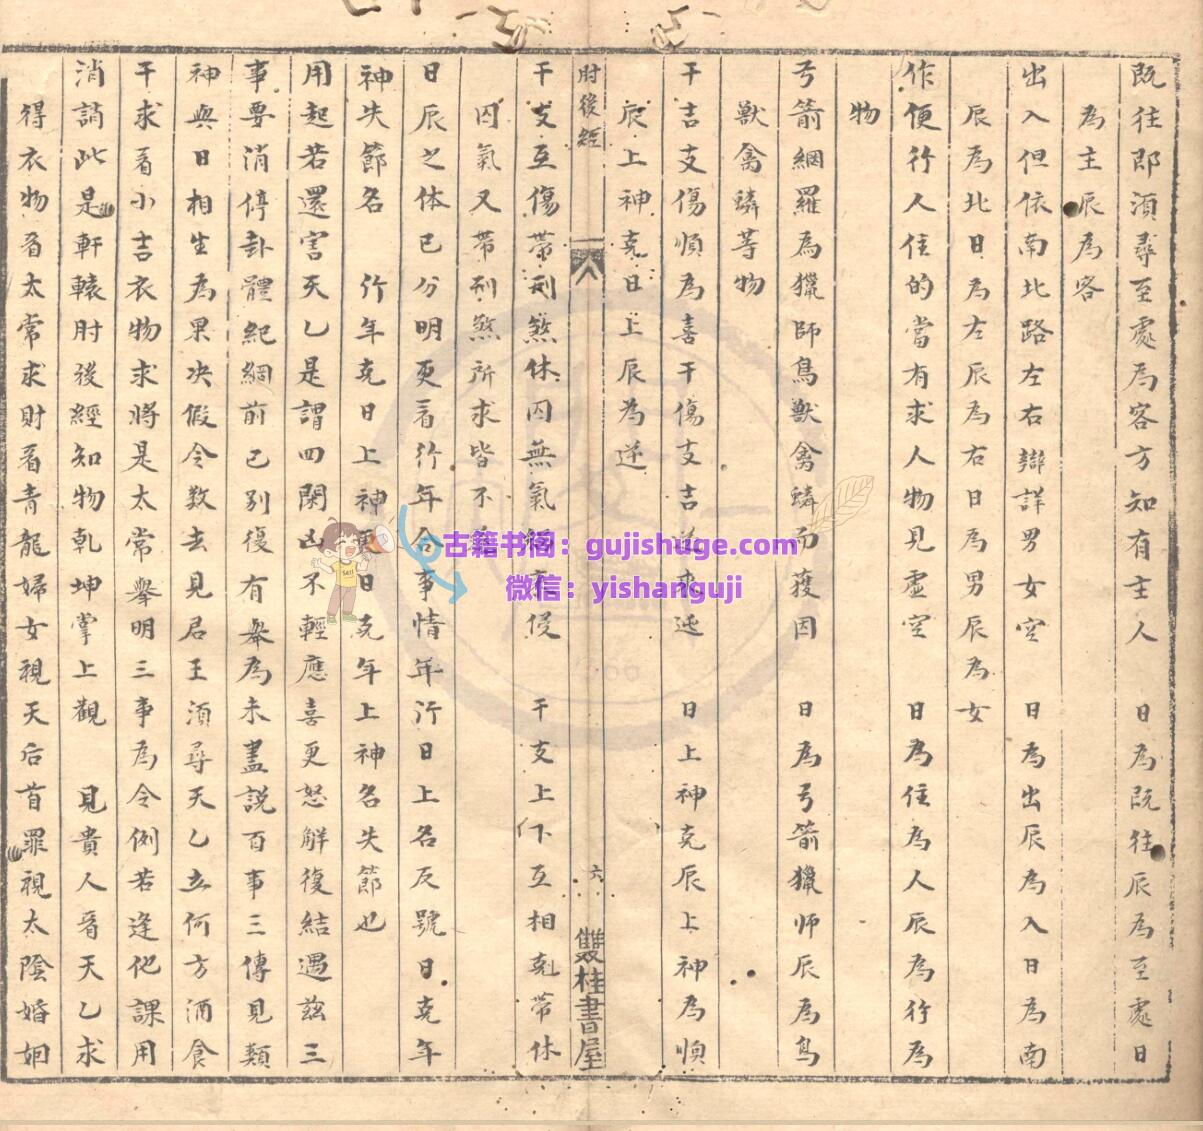 既往即湏尋至處為客方知有主人　日為既往辰為至處日
為主辰為客
出入但依南北路左右辯詳男女空　日為出辰為入日為南
辰為北日為左辰為右日為男辰為女
作便行人住的當有求人物見虛空　日為住為人辰為行為
物
弓箭網羅為獵師鳥獸禽鱗而獲因　日為弓箭獵師辰為鳥
獸禽鱗等物
干吉支傷順為喜干傷支吉逆來迍　日上神克辰上神為順
辰上神克日上辰為逆
肘後經
六
雙桂書屋
干支互傷帶刑煞休囚無氣侵　干支上下互相剋帶休
囚氣又帶刑煞所求皆不
日辰之体已分明更看行年合事情年行日上名反號日克年
神失節名　行年克日上神日克年上神名失節也
用起若還害天乙是謂四閑凶不輕應喜更怒解復結遇茲三
事要消停卦體紀綱前已別復有舉為未盡説百事三傳見類
神與日相生為果决假令数去見君王湏尋天乙立何方酒食
干求看小吉衣物求將是太常舉明三事為令例若逢他課用
消詳此是軒轅肘後經知物乹坤掌上觀　見貴人看天乙求
得衣物看太常求財看青龍婦女視天后首罪視太陰婚姻
古籍书阁：gujishuge.com
微信：yishanguji